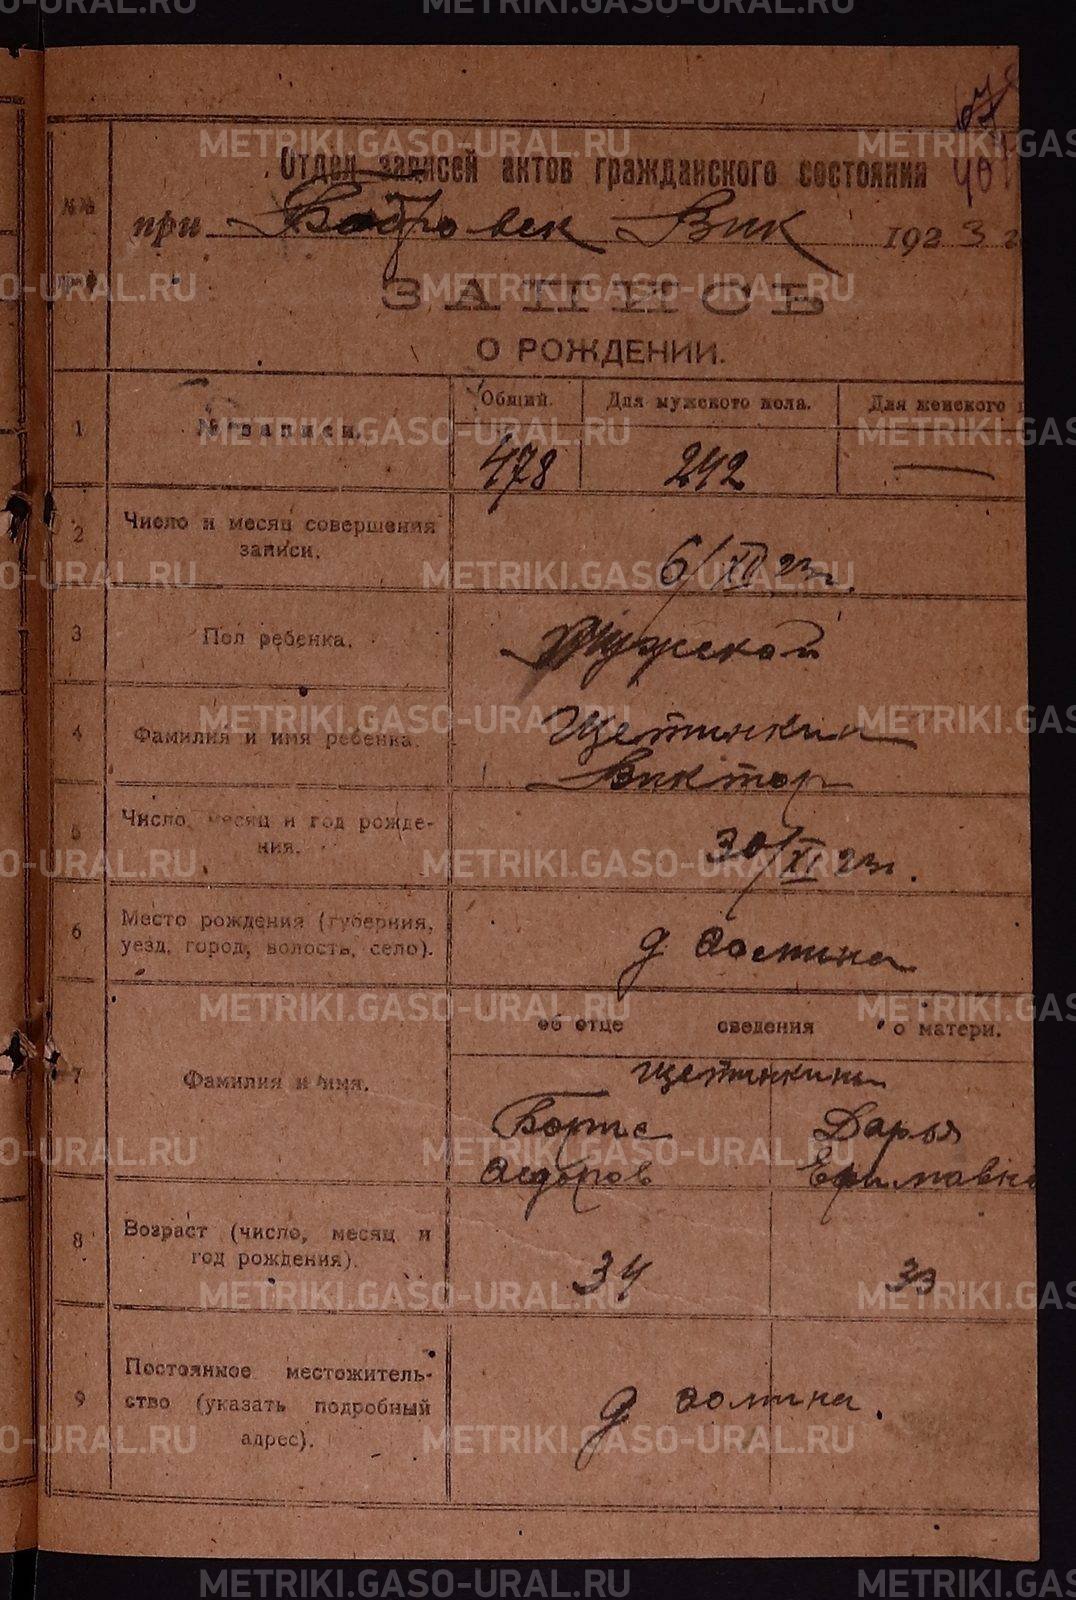 Отдел записей актов гражданского состояния
№№
при Бобровск Вик 1923 г
ЗАПИСЬ
О РОЖДЕНИИ.
Общий. Для мужского пола. Для женского
1 № записи. 478 242 —
2 Число и месяц совершения
записи. 6/XII 23г.
3 Пол ребенка. Мужской
4 Фамилия и имя ребенка. Щетинкин
Виктор
5 Число, месяц и год рожде-
ния. 30/XI 23г.
6 Место рождения (губерния,
уезд, город, волость, село). д
об отце сведения о матери.
7 Фамилия и имя. Щетинкины
Борис Дарья
Федоров Ефимовна
8 Возраст (число, месяц и
год рождения). 34 33
9 Постоянное местожитель-
ство (указать подробный
адрес). д
METRIKI.GASO-URAL.RU